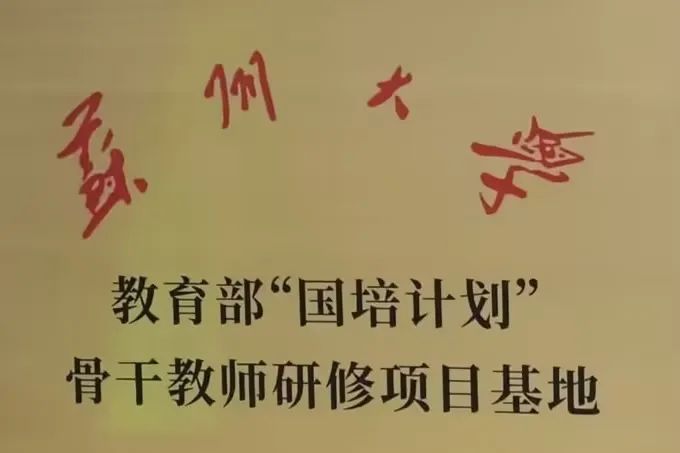 蘇州大學
教育部“国培计划”
骨干教师研修项目基地